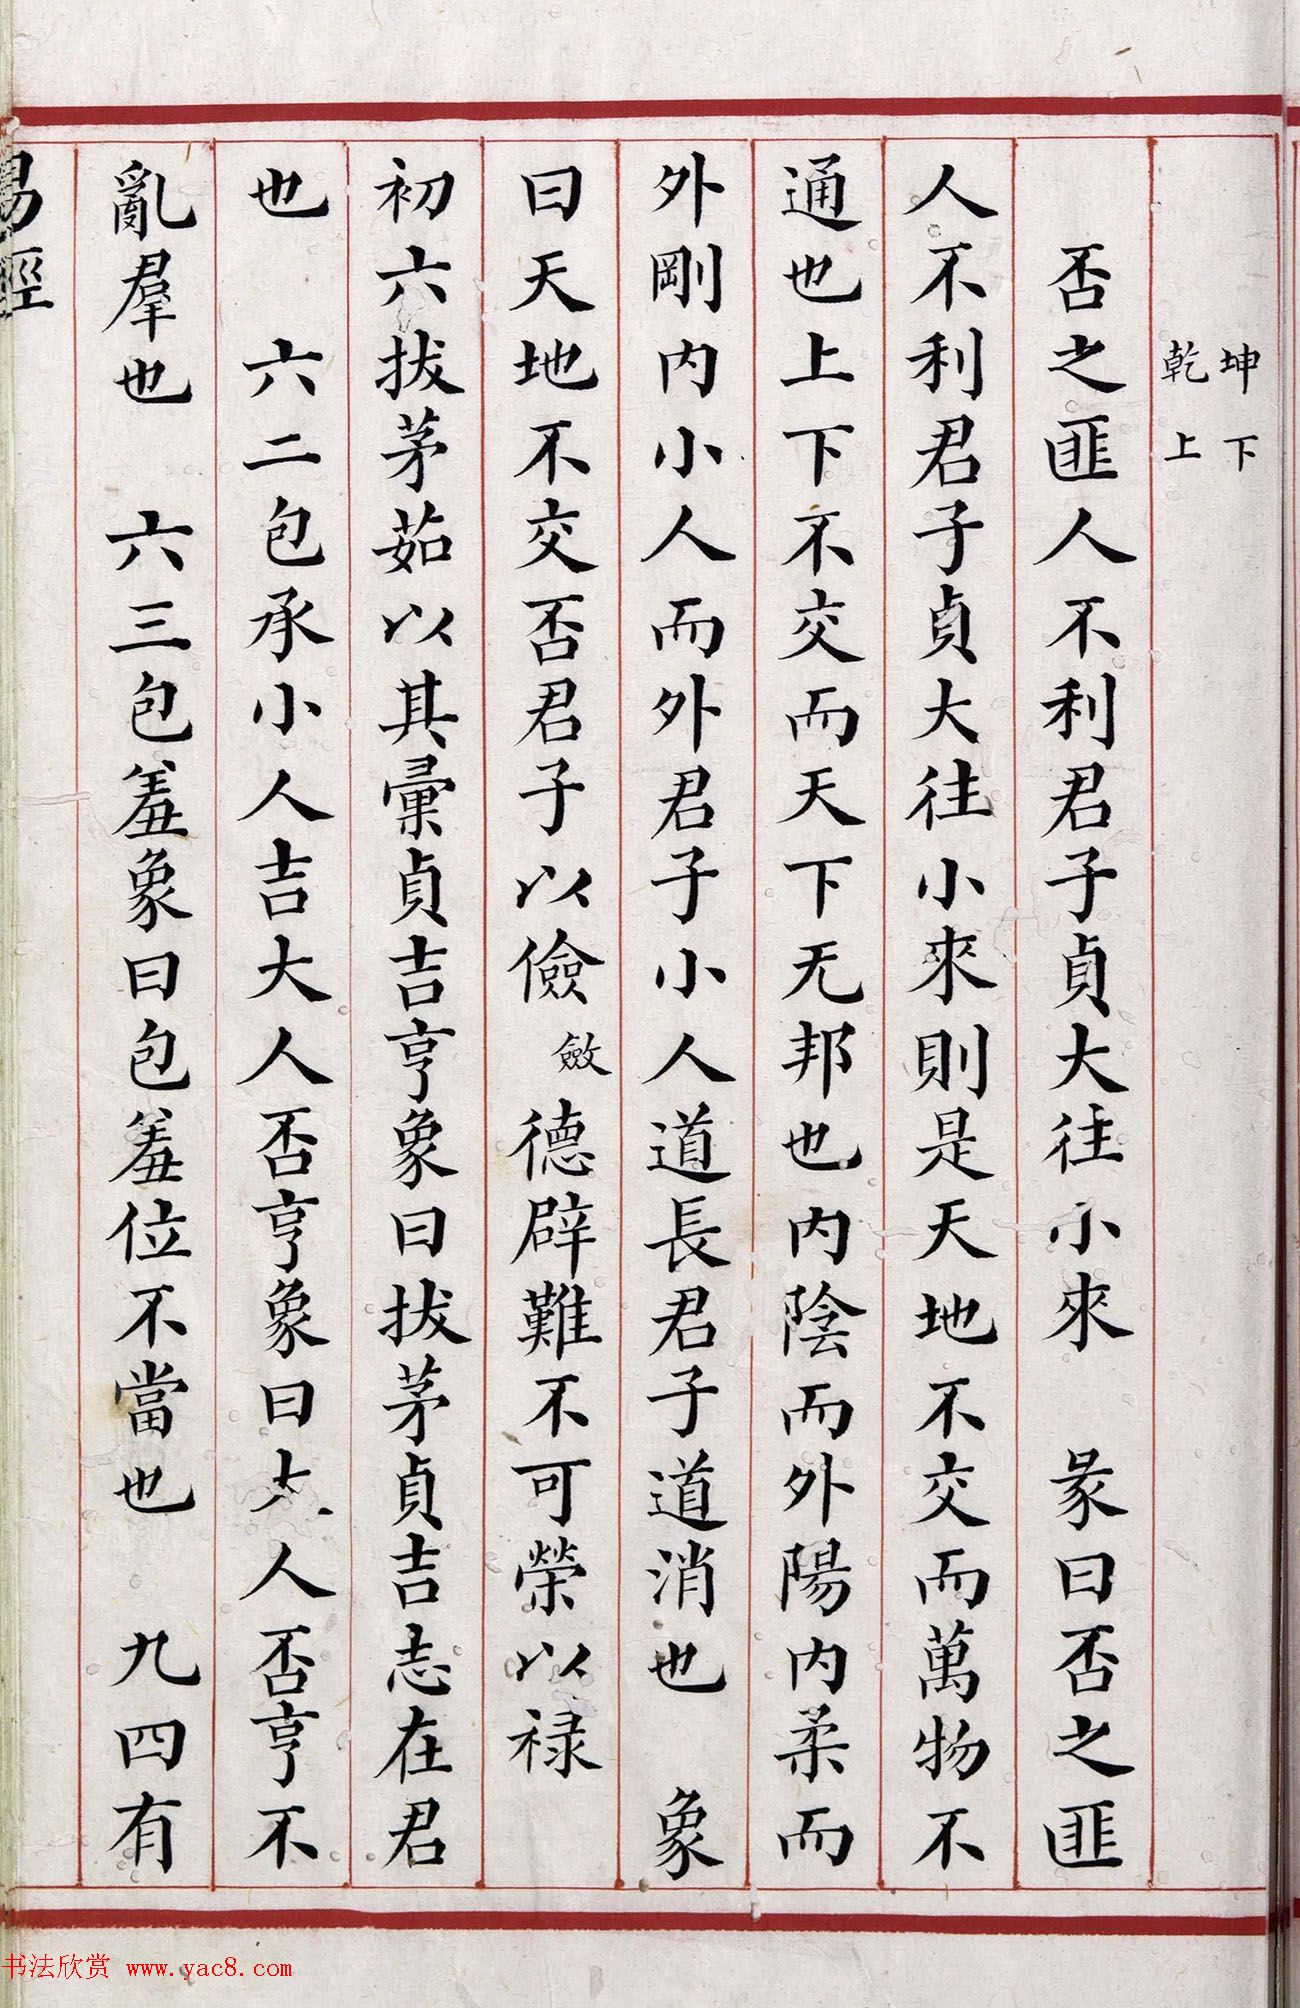 坤下
乾上
否之匪人不利君子貞大往小來　彖曰否之匪
人不利君子貞大往小來則是天地不交而萬物不
通也上下不交而天下无邦也內陰而外陽內柔而
外剛內小人而外君子小人道長君子道消也　象
曰天地不交否君子以儉斂德辟難不可榮以祿
初六拔茅茹以其彙貞吉亨象曰拔茅貞吉志在君
也　六二包承小人吉大人否亨象曰大人否亨不
亂羣也　六三包羞象曰包羞位不當也　九四有
易經
书法欣赏 www.yac8.com